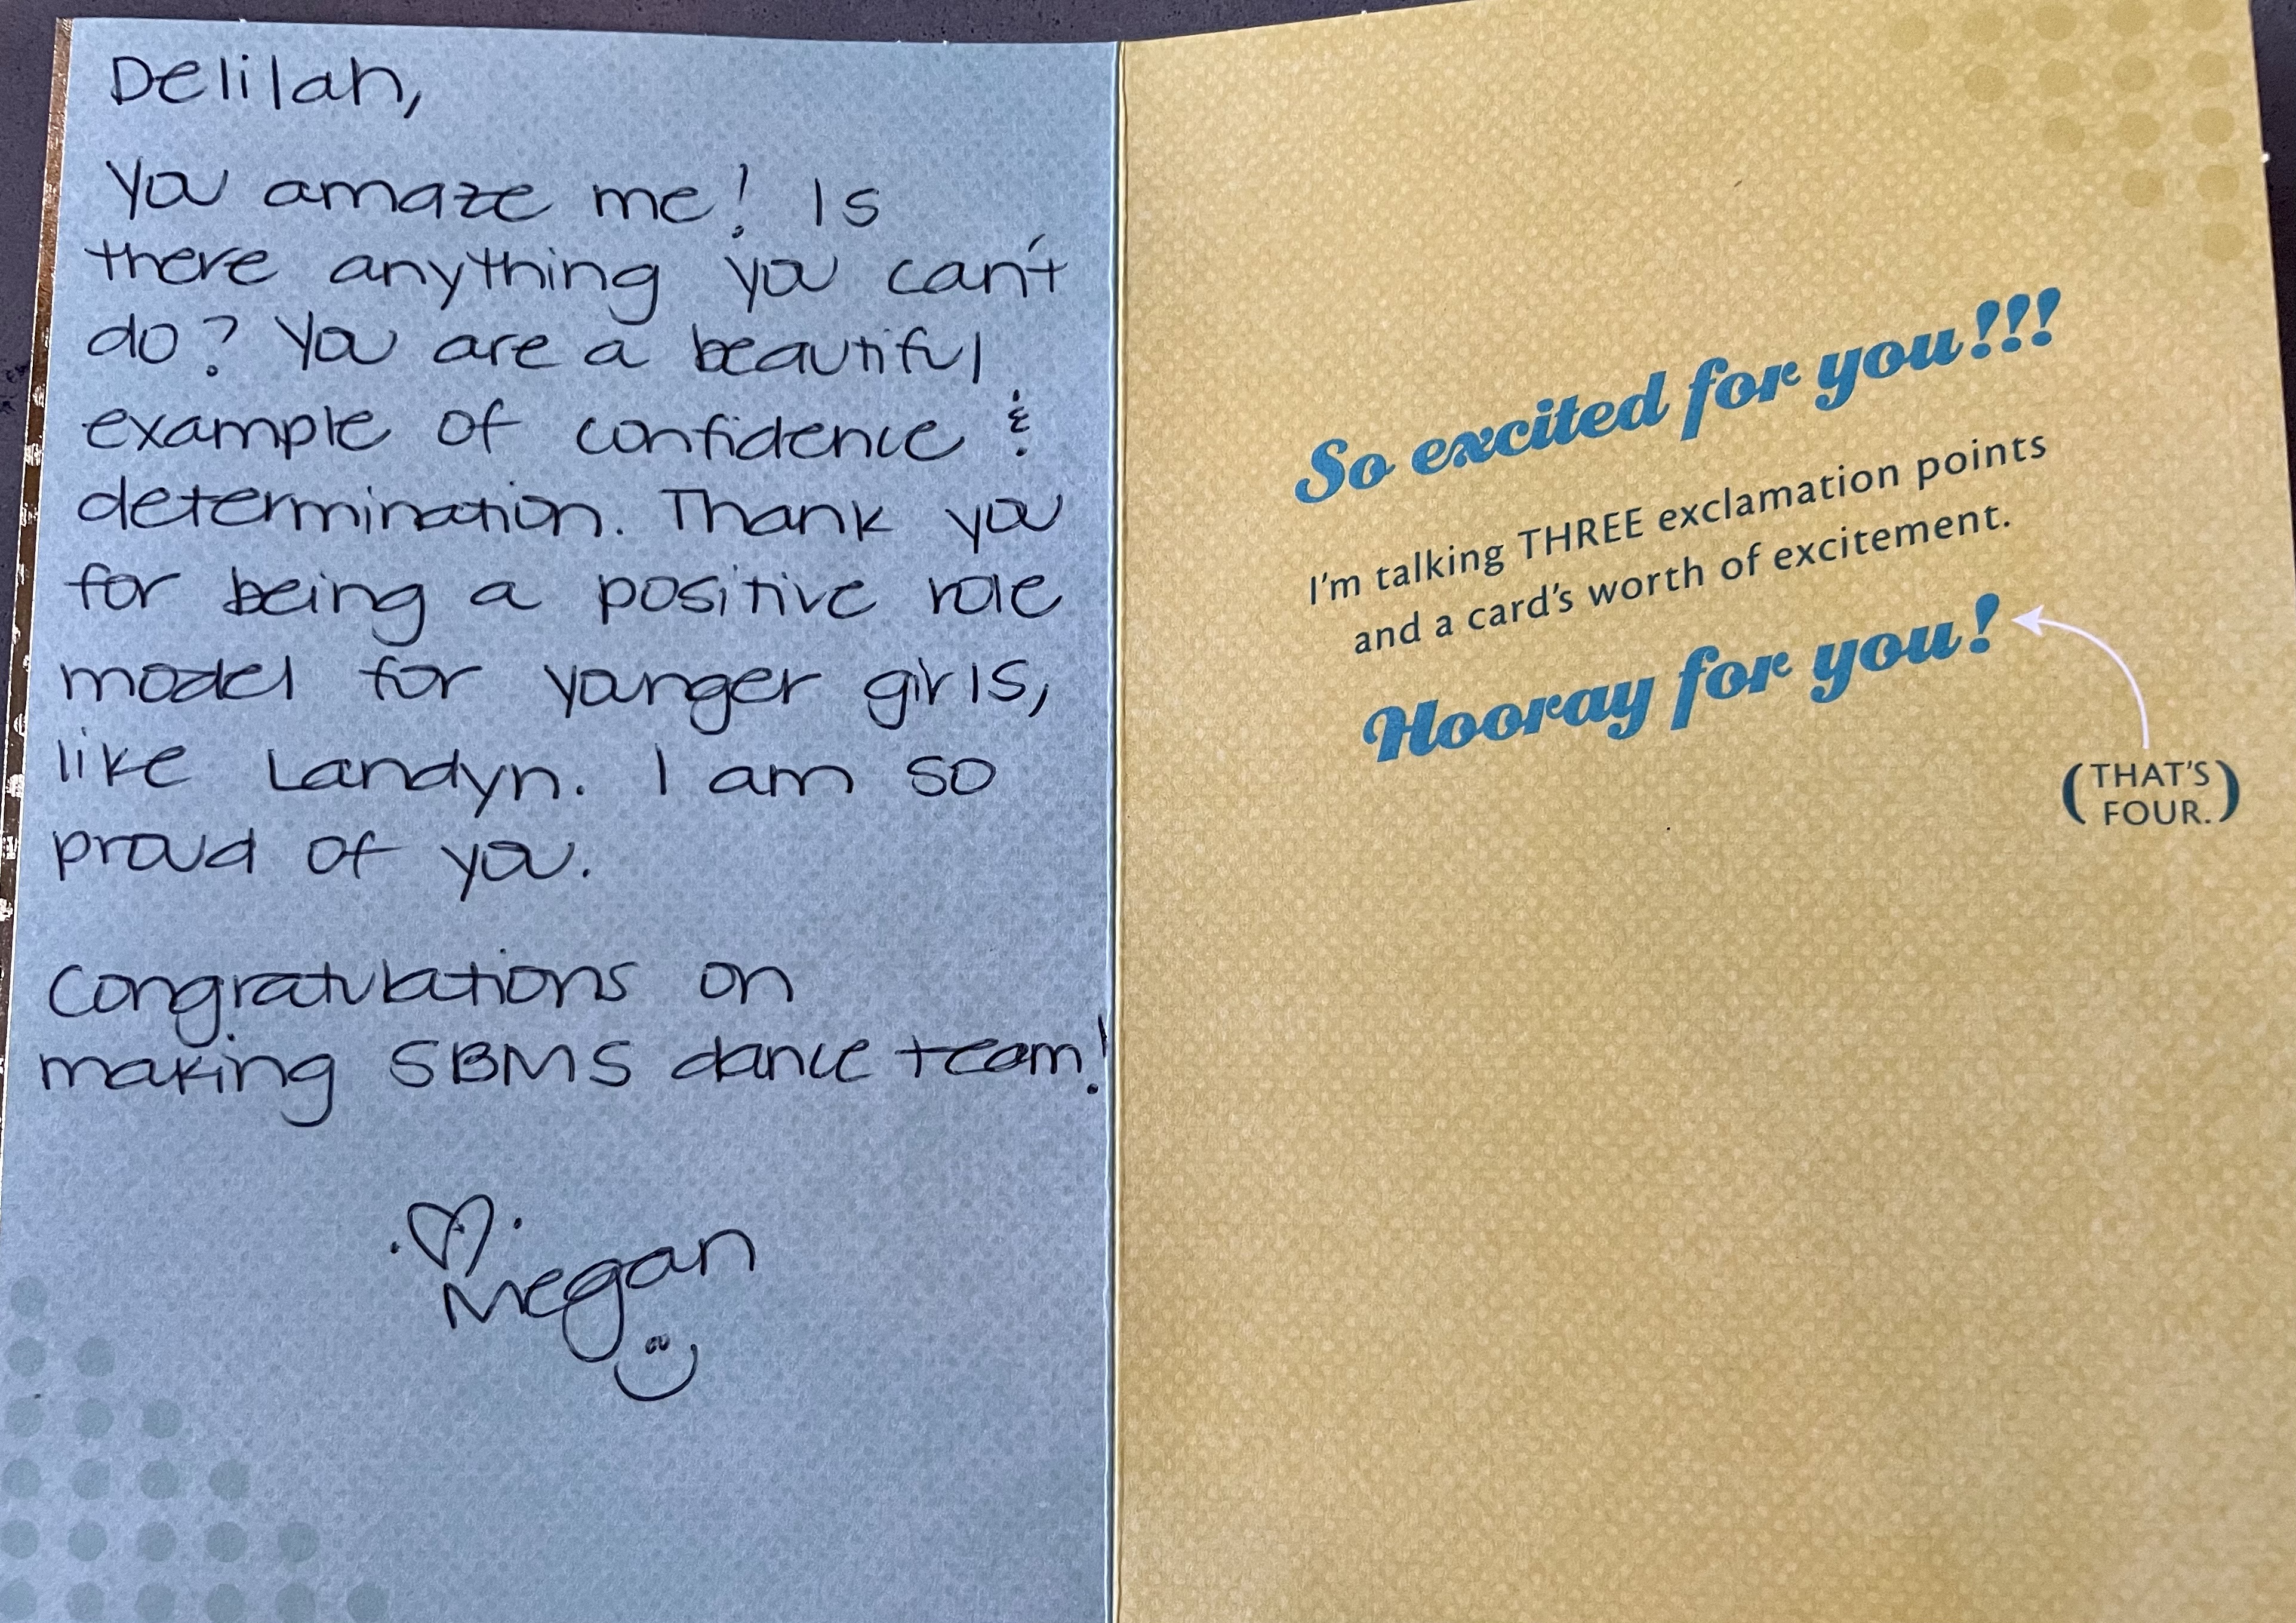 Delilah,
You amaze me! Is
there anything you can't
do? You are a beautiful
example of confidence &
determination. Thank you
for being a positive role
model for younger girls,
like Landyn. I am so
proud of you.
Congratulations on
making SBMS dance team!
Megan
So excited for you!!!
I'm talking THREE exclamation points
and a card's worth of excitement.
Hooray for you!
(THAT'S
FOUR.)